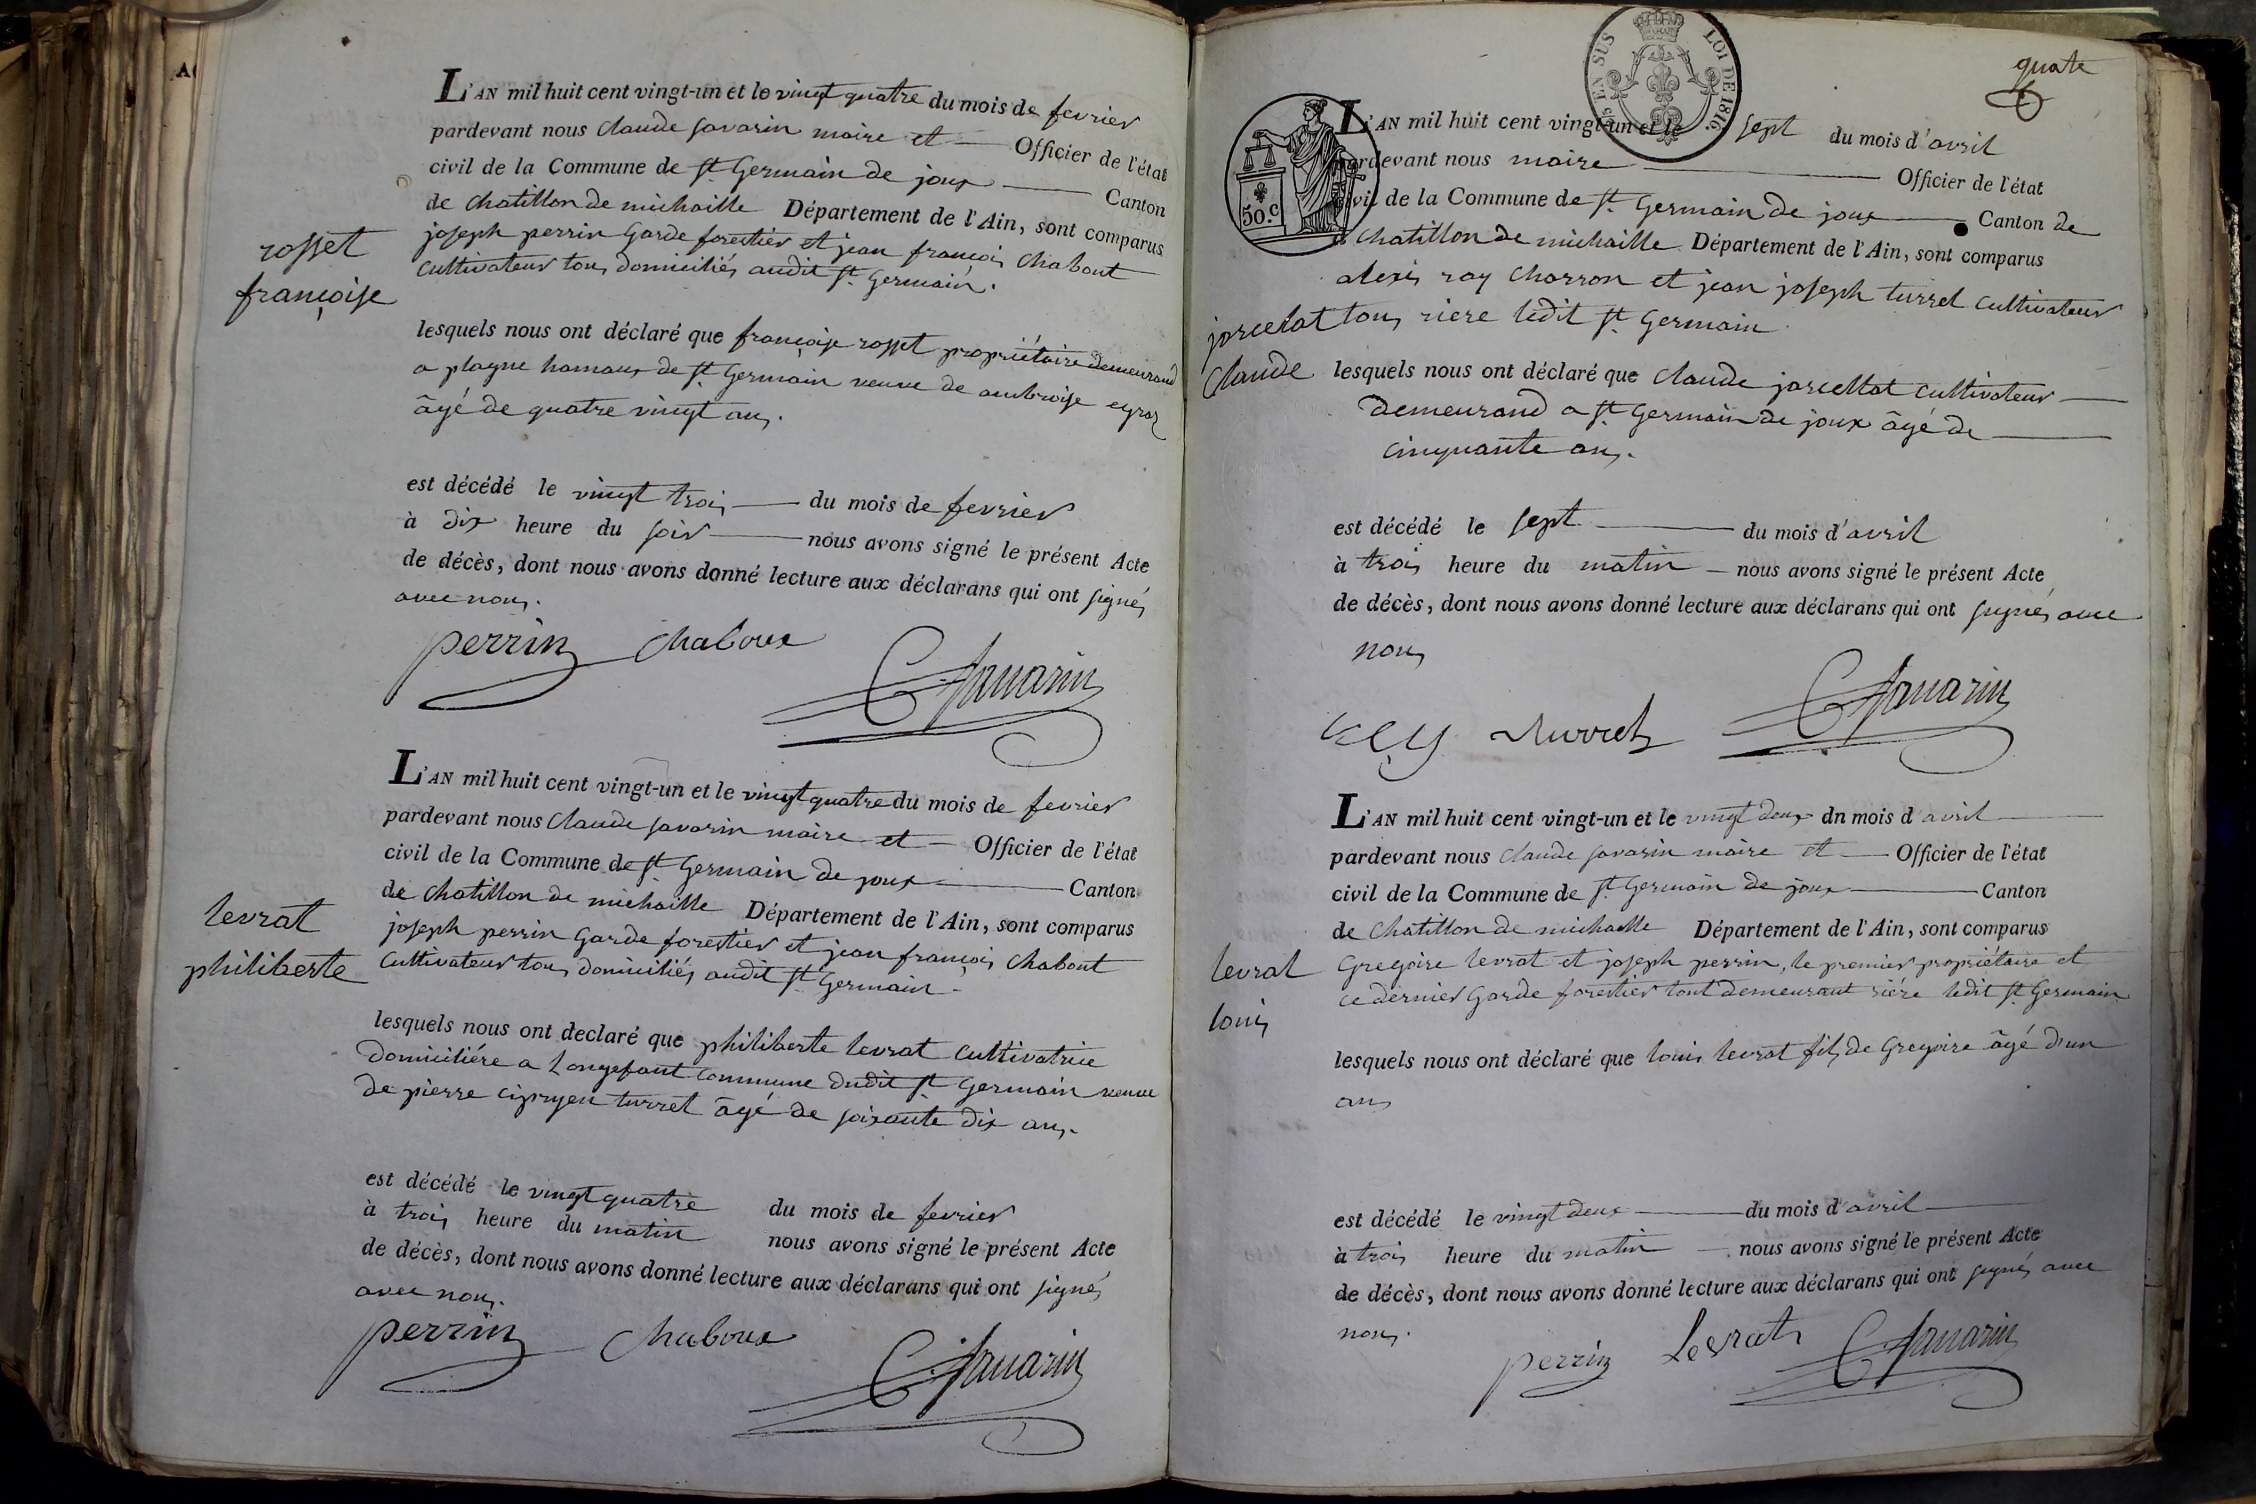 L'AN mil huit cent vingt-un et le vingt quatre du mois de fevrier
pardevant nous claude savarin maire et Officier de l'état
civil de la Commune de st Germain de joux Canton
de chatillon de michaille Département de l'Ain, sont comparus
joseph perrin Garde forestier et jean françois chabout
cultivateur tous domiciliés audit st Germain.
rosset
françoise
lesquels nous ont déclaré que françoise rosset propriétaire demeurand
a plagne hamaux de st Germain veuve de ambroise eyraz
âgé de quatre vingt ans.
est décédé le vingt trois du mois de fevrier
à dix heure du soir nous avons signé le présent Acte
de décès, dont nous avons donné lecture aux déclarans qui ont signés
avec nous.
perrin chaboux C Savarin
L'AN mil huit cent vingt-un et le vingt quatre du mois de fevrier
pardevant nous claude savarin maire et Officier de l'état
civil de la Commune de st Germain de joux Canton
de chatillon de michaille Département de l'Ain, sont comparus
joseph perrin Garde forestier et jean françois chabout
cultivateur tous domiciliés audit st Germain.
levrat
philiberte
lesquels nous ont declaré que philiberte levrat cultivatrice
domiciliére a Longefant commune dudit st Germain veuve
de pierre cipryen turret âgé de soixante dix ans.
est décédé le vingt quatre du mois de fevrier
à trois heure du matin nous avons signé le présent Acte
de décès, dont nous avons donné lecture aux déclarans qui ont signés
avec nous.
perrin chaboux C Savarin
quate
EN SUS LOI DE 1816.
50.c
L'AN mil huit cent vingt-un et le sept du mois d'avril
pardevant nous maire Officier de l'état
civil de la Commune de st Germain de joux Canton de
chatillon de michaille Département de l'Ain, sont comparus
alexis ray charron et jean joseph turret cultivateur
tous riere ledit st Germain
jarcelat
claude
lesquels nous ont déclaré que claude jarcellat cultivateur
demeurand a st Germain de joux âgé de
cinquante ans.
est décédé le sept du mois d'avril
à trois heure du matin nous avons signé le présent Acte
de décès, dont nous avons donné lecture aux déclarans qui ont signés avec
nous
C Savarin
L'AN mil huit cent vingt-un et le vingt deux dn mois d'avril
pardevant nous claude savarin maire et Officier de l'état
civil de la Commune de st Germain de joux Canton
de chatillon de michaille Département de l'Ain, sont comparus
Gregoire levrat et joseph perrin, le premier propriétaire et
ce dernier Garde forestier tout demeurant riére ledit st Germain
levrat
louis
lesquels nous ont déclaré que louis levrat fils de Gregoire âgé d'un
ans
est décédé le vingt deux du mois d'avril
à trois heure du matin nous avons signé le présent Acte
de décès, dont nous avons donné lecture aux déclarans qui ont signés avec
nous.
perrin Levrat C Savarin